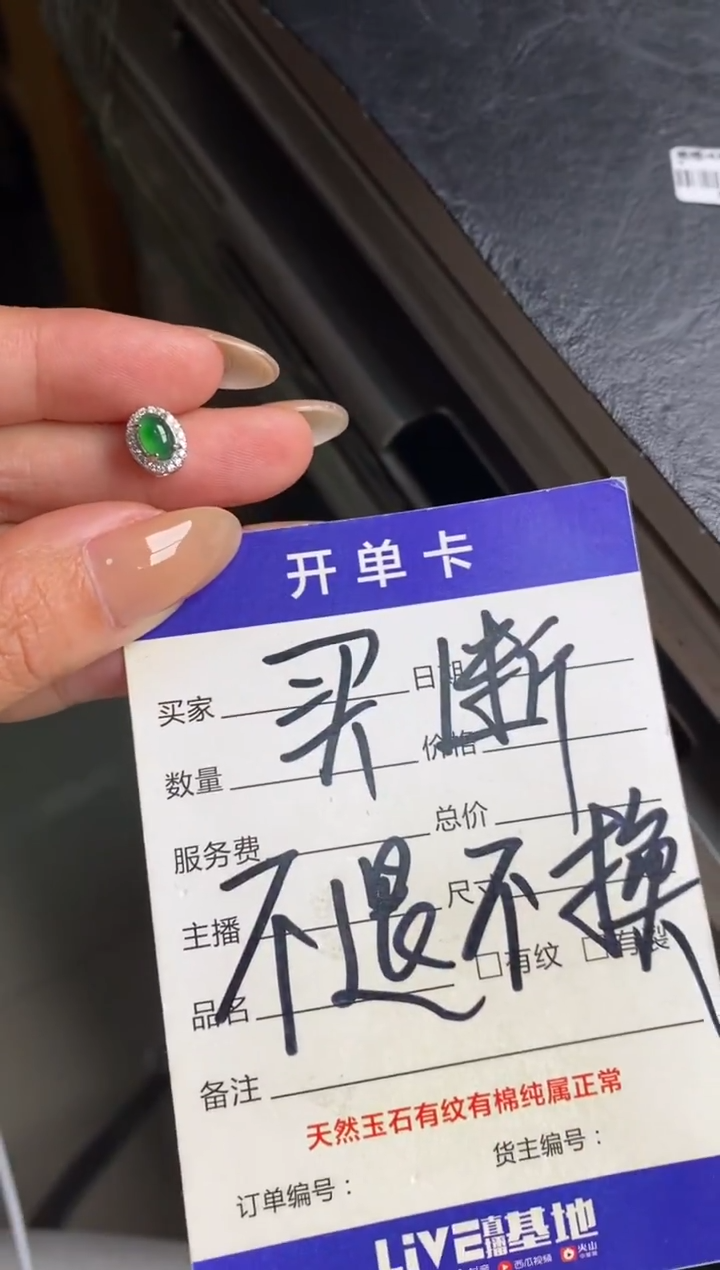 开单卡
买断
买家 日期
数量 价格
服务费 总价
不退不换
主播 尺寸
品名 □有纹 □有裂
备注
天然玉石有纹有棉纯属正常
订单编号： 货主编号：
LiVE直播基地
西瓜视频 火山